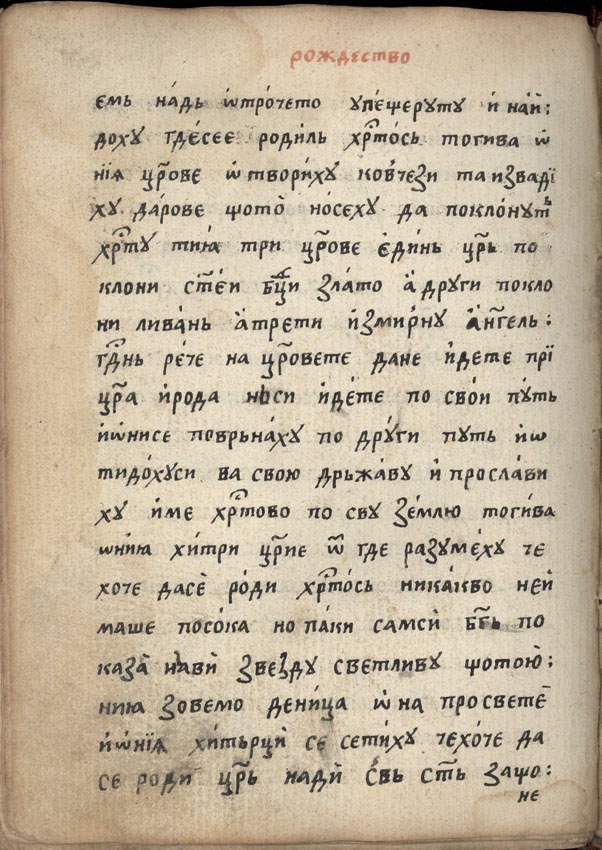 рождество
емь на́дь ѿтро́чето упе́щеруту и́ най:
доху где́сее роди́ль хрⷭто́сь тогива ѡ҆
нїѧ црⷭове ѿтвори́ху ковче́зи та извадї
ху да́рове щото̀ но́сеху да покло́нутъ
хрⷭту тиꙗ три црⷭове е҆ди́нь црⷭь по
клони сте҃и бц҃и зла́то а҆ други покло
ни лива́нь а҆трети и҆зми́рну а҆нг҃ель:
гдⷭнь ре́че на црⷭовете дане и҆дете прї
црⷭа и҆рода нъси и҆де́те по свои путь
и҆ѡ҆нисе поврьна́ху по дру́ги путь и҆ѡ
тидо́хуси ва свою дрьжа́ву и҆ просла́ви
ху и҆ме хрⷭтово по сву зе́млю тоги́ва
ѡнꙗ хи́три црⷭие ѿ где разуме́ху че
хоче дасѐ ро́ди хрⷭто́сь ника́кво не́й
маше посо́ка но па́ки самси́ бг҃ь по
каза̀ нави̏ звезду светливу щотою̀:
ниꙗ зовемо дени́ца ѡ҆на просветѐ
и҆ѡ҆нїѧ хи́тьрци́ се сети́ху чехо́че да
се роди црⷭь нади̏ свь стⷭь защо:
не